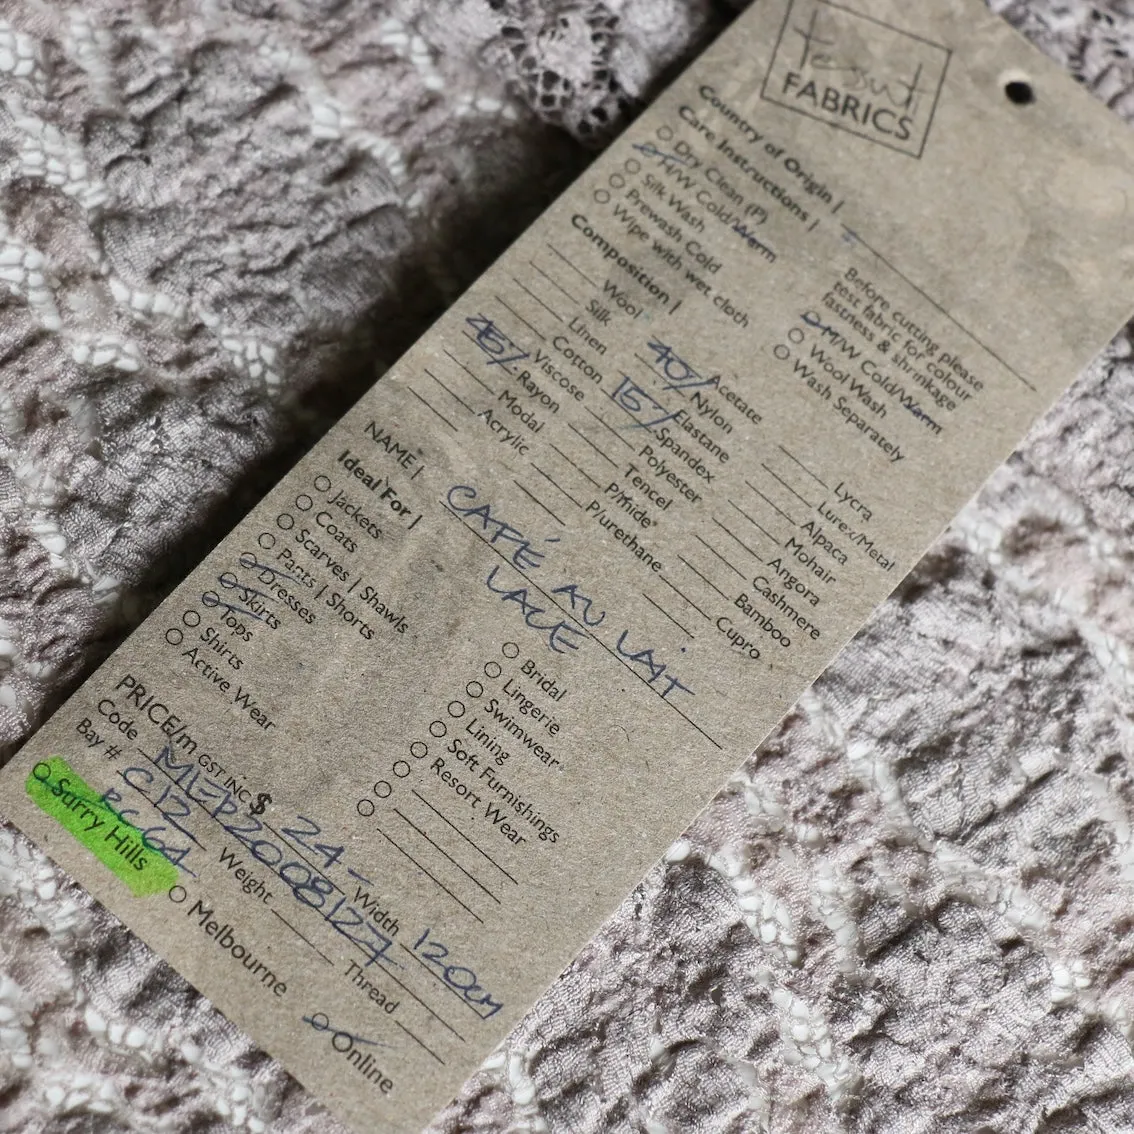 Tessuti
FABRICS
Country of Origin |
Care Instructions |
Dry Clean (P)
H/W Cold/Warm
Silk Wash
Prewash Cold
Wipe with wet cloth
Before cutting please
test fabric for colour
fastness & shrinkage
M/W Cold/Warm
Wool Wash
Wash Separately
Composition |
Wool
Silk
Linen
Cotton
45% Viscose
Rayon
Modal
Acrylic
Acetate
40% Nylon
Elastane
15% Spandex
Polyester
Tencel
P/mide*
P/urethane
Lycra
Lurex/Metal
Alpaca
Mohair
Angora
Cashmere
Bamboo
Cupro
NAME | CAFÉ AU LAIT
LACE
Ideal For |
Jackets
Coats
Scarves | Shawls
Pants | Shorts
Dresses
Skirts
Tops
Shirts
Active Wear
Bridal
Lingerie
Swimwear
Lining
Soft Furnishings
Resort Wear
PRICE/m GST INC $ 24- Width 120cm
Code
Bay # C12 Weight Thread
Surry Hills
Melbourne
Online